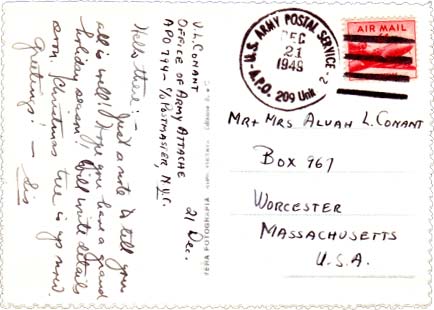 V.L. CONANT
OFFICE OF ARMY ATTACHE
APO 794 - % POSTMASTER, N.Y.C.
21 Dec.
Hello there! - Just a note to tell you
all is well! Hope you have a grand
holiday season! Will write details
soon. Christmas tree is up now.
Greetings! - Sis
VERA FOTOGRAFIA
U.S. ARMY POSTAL SERVICE
DEC
21
1949
A.P.O. 209 Unit 2
AIR MAIL
MR + MRS ALVAH L. CONANT
BOX 967
WORCESTER
MASSACHUSETTS
U.S.A.